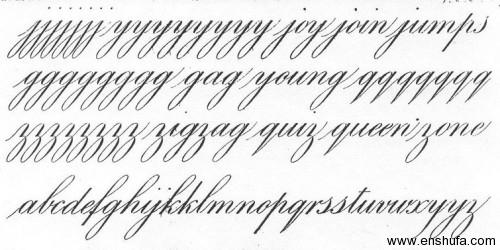 jjjjjjjj yyyyyyyyy joy join jumps
ggggggggg gag young qqqqqqq
zzzzzzzz zigzag quiz queen zone
abcdefghijkklmnopqrsstuvwxyyz
www.enshufa.com